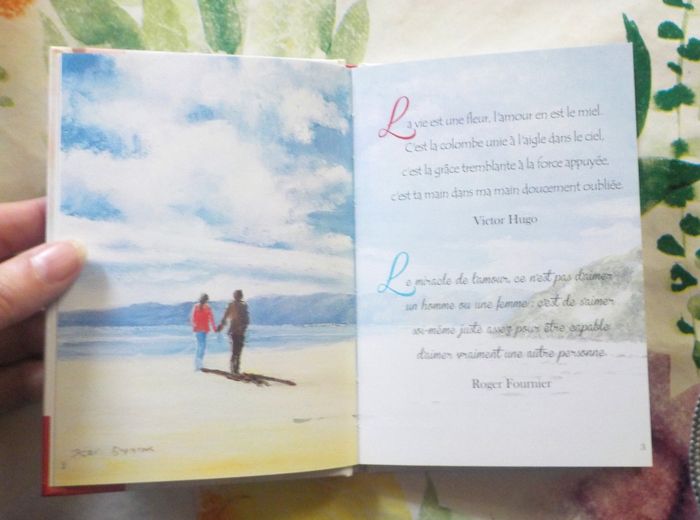 La vie est une fleur, l'amour en est le miel.
C'est la colombe unie à l'aigle dans le ciel,
c'est la grâce tremblante à la force appuyée,
c'est ta main dans ma main doucement oubliée.
Victor Hugo
Le miracle de l'amour, ce n'est pas d'aimer
un homme ou une femme : c'est de s'aimer
soi-même juste assez pour être capable
d'aimer vraiment une autre personne.
Roger Fournier